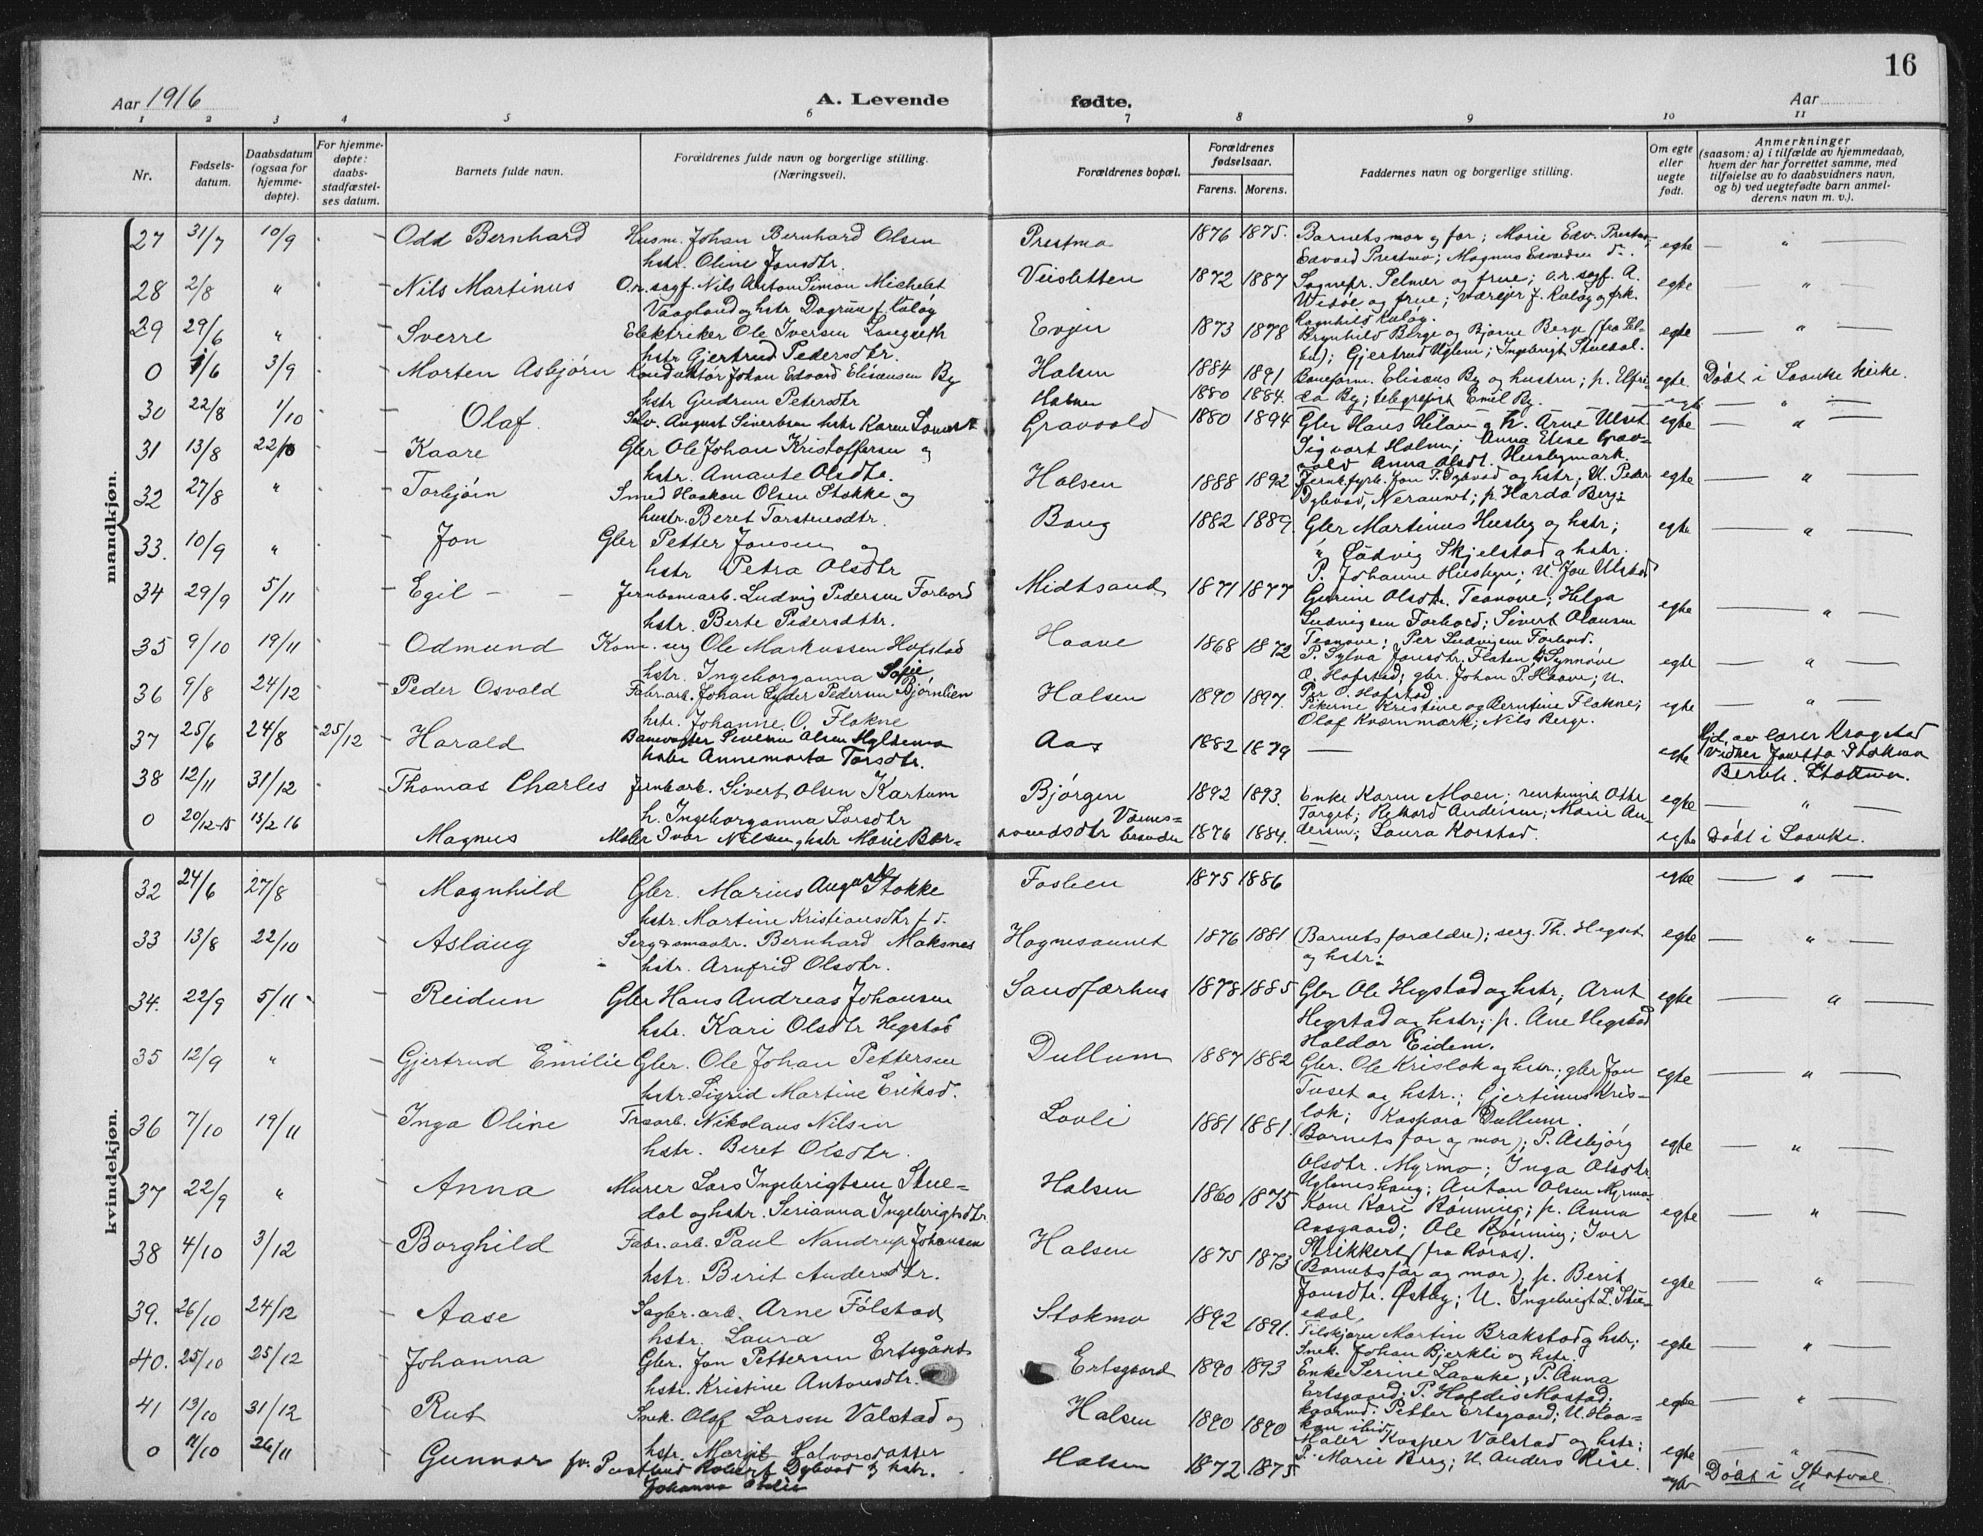 16
Aar 1916
A. Levende
fødte.
Aar
1 2 3 4 5 6 7 8 9 10 11
Nr.
Fødsels-
datum.
Daabsdatum
(ogsaa for
hjemme-
døpte).
For hjemme-
døpte:
daabs-
stadfæstel-
ses datum.
Barnets fulde navn.
Forældrenes fulde navn og borgerlige stilling.
(Næringsvei).
Forældrenes bopæl.
Forældrenes
fødselsaar.
Farens. Morens.
Faddernes navn og borgerlige stilling.
Om egte
eller
uegte
født.
Anmerkninger
(saasom: a) i tilfælde av hjemmedaab,
hvem der har forrettet samme, med
tilføielse av to daabsvidners navn,
og b) ved uegtefødte barn anmel-
derens navn m. v.).
mandkjøn.
27 31/7 10/9 Odd Bernhard Husm. Johan Bernhard Olsen Prestmo 1876 1875. Barnets mor og far; Marie Edv. Prestmo
hstr. Oline Jonsdtr. Edvard Prestmo; Magnus Edvardsen do. egte — " —
28 2/8 " Nils Martinus O.r.sagf. Nils Anton Simon Michelet Veisletten 1872 1887 Sognepr. Selmer og frue; o.r.sagf. A.
Vaagland og hstr Dagrun f. Kaløy Widøe og frue; værejer J. Kaløy og frk. egte — " —
Ragnhild Kaløy.
29 29/6 " Sverre Elektriker Ole Iversen Langseth Evjen 1873 1878 Brynhild Berge og Bjarne Berge (fra Sel-
hstr Gjertrud Pedersdtr. bu); Gjertrud Uglem; Ingebrigt Stuedal. egte — " —
0 1/6 3/9 Morten Asbjørn Konduktør Johan Edvard Elisæusen By Halsen 1884 1891 Baneform. Elisæus By og hustru; p. Elfri- egte Døbt i Laanke kirke.
hstr Gudrun Petersdtr da By; telegrafist Emil By.
30 22/8 1/10 Olaf. Selv. August Sivertsen hstr Karen Halsen 1880 1884. egte — " —
31 13/8 22/10 Kaare Gbr Ole Johan Kristoffersen og Gravvold 1880 1894 Gbr Hans Helan og h. Arne Ulset egte — " —
hstr. Amante Olsdtr. Sigvart Halsen; Anna Elise Grav-
vold Anna Olsdt. Husbymark.
32 27/8 " Torbjørn Smed Haakon Olsen Stokke og Halsen 1888 1892 Jernbfyrb. Jon T. Dybvad og hstr; U. Peder egte — " —
hustr. Beret Torstensdtr. Dybvad, ; p. Harda Berg.
33. 10/9 " Jon Gbr Petter Jonsen og Baug 1882 1889. Gbr Martinus Husby og hstr; egte — " —
hstr Petra Olsdtr " Ludvig Skjelstad og hstr.
P. Johanne Husbyn; U. Jon Ulstad
34 29/9 5/11 Egil Jernbanearb. Ludvig Pedersen Forbord Midtsand 1871 1877 Gurine Olsdtr. Teanove; Helga
hstr. Berte Pedersdtr. Ludvigsen Forbord; Sivert Olausen egte — " —
Teanove; Per Ludvigsen Forbord.
35 9/10 19/11 Odmund Kom. ing Ole Markussen Hofstad Haave 1868 1872 P. Sylva Jonsdtr. Flaten; Synnøve
hstr. Ingeborganna Sofie O. Hofstad; gbr. Johan P. Haave; U. egte — " —
Per O. Hofstad.
36 9/8 24/12 Peder Osvald Fabr.arb. Johan Peder Pedersen Bjørnlien Halsen 1890 1897. Pikerne Kristine og Berntine Flakne; egte — " —
hstr. Johanne O. Flakne Olaf Kværnmark; Nils Berge.
37 25/6 24/8 25/12 Harald Banevogter Severin Olsen Hyldemo Aas 1882 1879 — egte Hjd. av lærer Kragstad
hstr Annemarta Torsdtr. Vidner Jonetta Stokmo
Bernh. Stokmo.
38 12/11 31/12 Thomas Charles Jernb.arb. Sivert Olsen Kartum Bjørgen 1892 1893. Enke Karen Moen; Otto
h. Ingeborganna Larsdtr Torget; Andersen; Marie An- egte — " —
0 20/12-15 13/2 16 Magnus Maler Ivar Nilsen og hstr Marie Ber- 1876 1884. dersen; Laura Korstad. egte Døbt i Laanke.
kvindekjøn.
32 24/6 27/8 Magnhild Gbr. Marius August Stokke Foslien 1875 1886 egte — " —
hstr. Martine Kristiansdtr f. d.
33 13/8 22/10 Aslaug Serg & smaabr. Bernhard Moksnes Hognesaunet 1876 1881 (Barnets forældre); serg. Th. Hegset egte — " —
hstr. Arnfrid Olsdtr. og hstr.
34. 22/9 5/11 Reidun Gbr Hans Andreas Johansen Sandfærhus 1878 1885 Gbr Ole Hegstad og hstr; Arnt egte — " —
hstr. Kari Olsdtr Hegstad Hegstad og hstr; p. Ane Hegstad
Haldor Eidem.
35 12/9 " Gjertrud Emilie Gbr. Ole Johan Pettersen Dullum 1887 1882 Gbr. Ole Krislok og hstr; gbr Jon
hstr. Sigrid Martine Eriksd. Tuset og hstr.; Gjertinus Kris- egte — " —
lok; Kaspara Dullum.
36 7/10 19/11 Inga Oline Træarb. Nikolaus Nilsen Lovli 1881 1881. (Barnets far og mor); P. Asbjørg
hstr. Beret Olsdtr. Olsdtr. Myrmo; Inga Olsdtr egte — " —
Uglemshaug; Anton Olsen Myrmo
37 22/9 " Anna Murer Lars Ingebrigtsen Stue- Halsen 1860 1875 Kone Kari Rønning; p. Anna
dal og hstr. Serianna Ingebrigtsdtr Aasgaard; Ole Rønning; Iver egte — " —
Strikkert (fra Røros).
38 4/10 3/12 Borghild Fabr.arb. Paul Nandrup Johansen Halsen 1875 1873 (Barnets far og mor); p. Berit
hstr. Berit Andersdtr. Jonsdtr. Østby; U. Ingebrigt L. Stu- egte — " —
edal.
39. 26/10 24/12 Aase Sagbr.arb. Arne Følstad Stokmo 1892 1891. Tilskjærer Martin Brakstad og hstr;
hstr. Laura Snek. Johan Bjerkli og hstr. egte — " —
40. 25/10 25/12 Johanna Gbr. Jon Pettersen Ertsgård Ertsgaard 1890 1893 Enke Serine Laanke, P. Anna
hstr. Kristine Antonsdtr. Ertsgaard; P. Haldis Mostad; egte — " —
Petter Ertsgaard; U. Haa-
kon ibid.
41 13/10 31/12 Rut Snek. Olaf Larsen Valstad og Halsen 1890 1890 Maler Kasper Valstad og hstr;
hstr. Margit Halvorsdatter P. Marie Berg; U. Anders Rise. egte — " —
0 4/10 26/11 Gunnor fv. Postbud Robert Dybvad og hstr. Halsen 1872 1875 egte Døbt i Skatval
Johanna